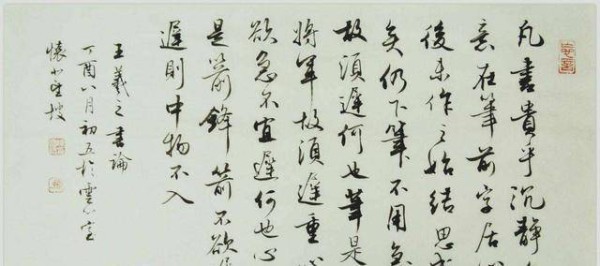 凡書貴乎沉靜
意在筆前字居
後未作之始結思成
矣仍下筆不用急
故須遲何也筆是
將軍故須遲重
欲急不宜遲何也心
是箭鋒箭不欲
遲則中物不入
王羲之書論
丁酉八月初五於雲
懷坡